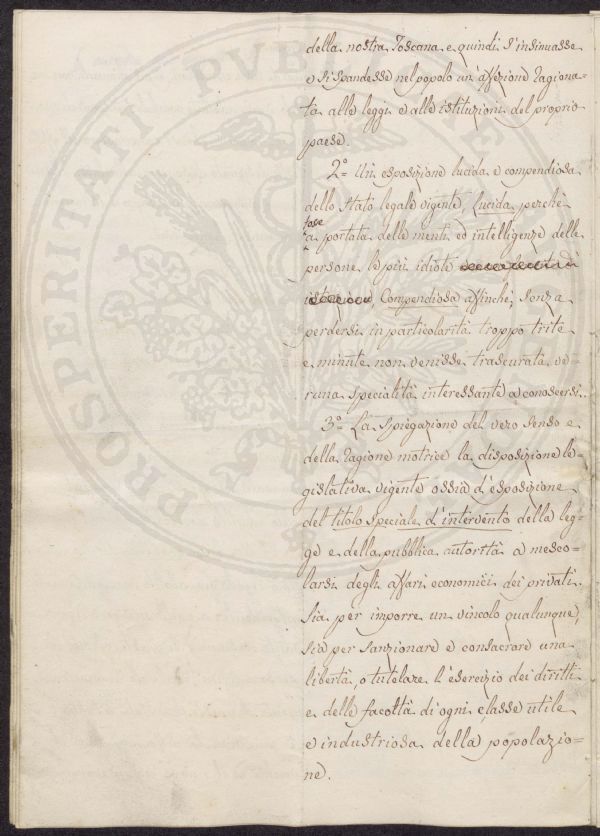 della nostra Toscana e quindi s'insinuasse
e si spandesse nel popolo un'affezione ragiona=
ta alle leggi e alle istituzioni del proprio
paese.
2.° Un esposizione lucida e compendiosa
dello Stato legale vigente; Lucida perchè
fosse
a portata delle menti ed intelligenze delle
persone le più idiote
Compendiosa affinchè, senza
perdersi in particolarità troppo trite
e minute non venisse trascurata ve=
runa specialità interessante a conoscersi.
3.° La spiegazione del vero senso e
della ragione motrice la disposizione le=
gislativa vigente ossia d'esposizione
del titolo speciale d'intervento della leg=
ge e della pubblica autorità a mesco=
larsi degli affari economici dei privati
sia per imporre un vincolo qualunque,
sia per sanzionare e consacrare una
libertà, o tutelare l'esercizio dei diritti
e delle facoltà di ogni classe utile
e industriosa della popolazio=
ne.
PROSPERITATI PUBLICAE